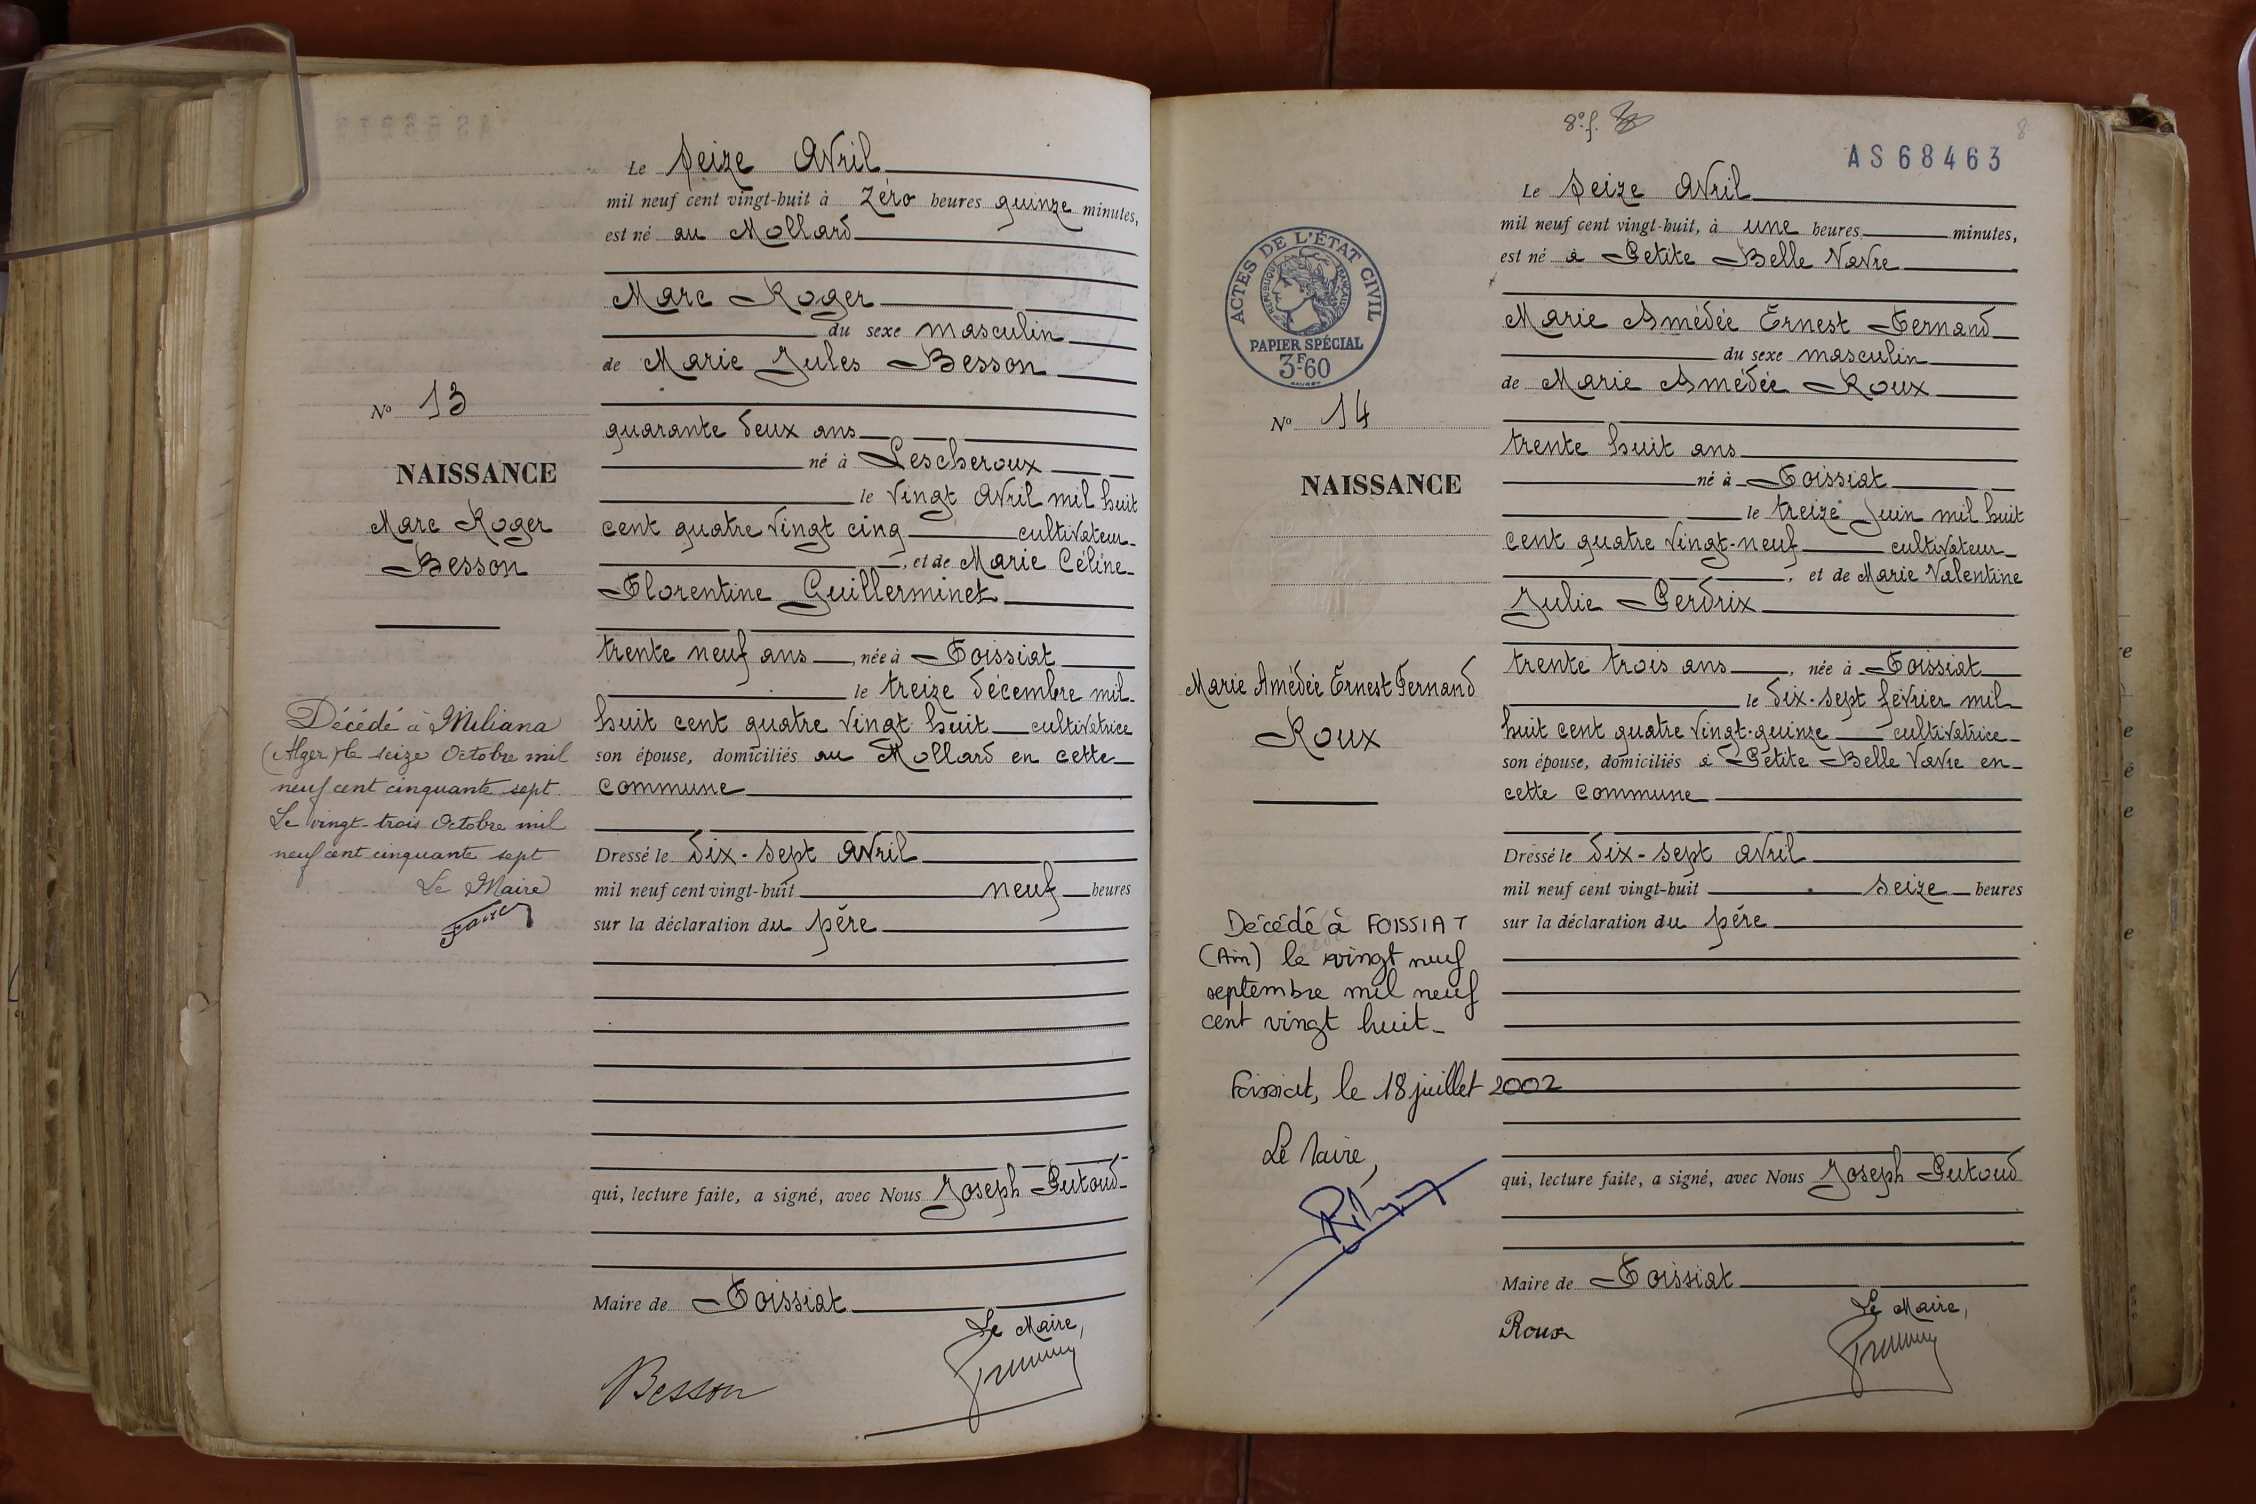 Le seize Avril
mil neuf cent vingt-huit à Zéro heures quinze minutes,
est né au Mollard
Marc Roger
du sexe masculin
de Marie Jules Besson
No 13
quarante deux ans
né à Lescheroux
NAISSANCE
le vingt Avril mil huit
Marc Roger
cent quatre vingt cinq cultivateur
, et de Marie Céline
Besson
Florentine Guillerminet
trente neuf ans, née à Foissiat
le treize décembre mil
huit cent quatre vingt huit cultivatrice
son épouse, domiciliés au Mollard en cette
commune
Décédé à Miliana
(Alger) le seize Octobre mil
neuf cent cinquante sept.
Le vingt-trois Octobre mil
neuf cent cinquante sept
Le Maire
Dressé le dix-sept Avril
mil neuf cent vingt-huit neuf heures
sur la déclaration du père
qui, lecture faite, a signé, avec Nous Joseph Putoud
Maire de Foissiat
Le Maire,
Besson
8e f.
8
AS 68463
Le seize Avril
mil neuf cent vingt-huit, à une heures minutes,
est né à Petite Belle Vavre
ACTES DE L'ÉTAT CIVIL
RÉPUBLIQUE FRANÇAISE
PAPIER SPÉCIAL
3F60
Marie Amédée Ernest Fernand
du sexe masculin
de Marie Amédée Roux
No 14
trente huit ans
né à Foissiat
NAISSANCE
le treize Juin mil huit
cent quatre vingt-neuf cultivateur
, et de Marie Valentine
Julie Perdrix
trente trois ans, née à Foissiat
Marie Amédée Ernest Fernand
Roux
le dix-sept février mil
huit cent quatre vingt-quinze cultivatrice
son épouse, domiciliés à Petite Belle Vavre en
cette commune
Dressé le dix-sept avril
mil neuf cent vingt-huit seize heures
sur la déclaration du père
Décédé à FOISSIAT
(Ain) le vingt neuf
septembre mil neuf
cent vingt huit
Foissiat, le 18 juillet 2002
Le Maire,
qui, lecture faite, a signé, avec Nous Joseph Putoud
Maire de Foissiat
Le Maire,
Roux